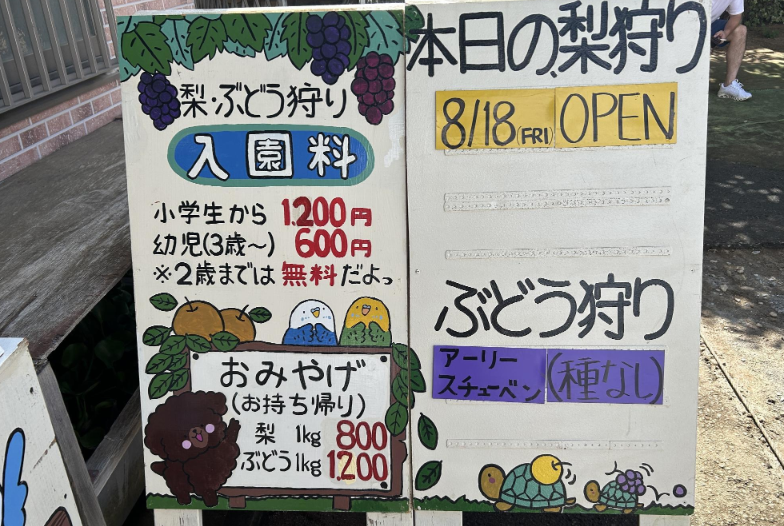 梨・ぶどう狩り
入園料
小学生から 1.200円
幼児(3歳〜) 600円
※2歳までは無料だよっ
おみやげ
(お持ち帰り)
梨 1kg 800
ぶどう1kg 1.200
本日の梨狩り
8/18(FRI) OPEN
ぶどう狩り
アーリー
スチューベン (種なし)